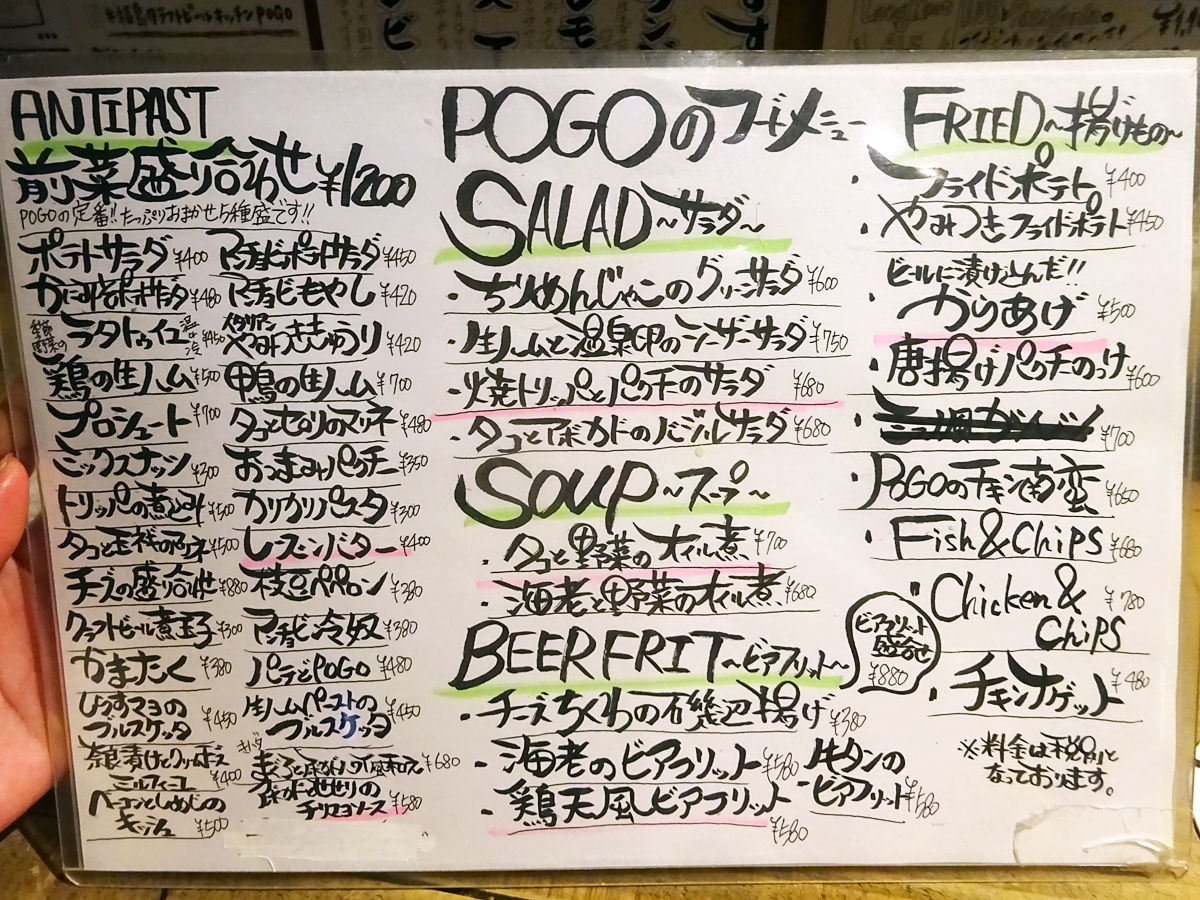 福島クラフトビールキッチンPOGO
ANTIPAST
前菜盛り合わせ ¥1200
POGOの定番!!たっぷりおまかせ5種盛です!!
ポテトサラダ ¥400
アンチョビポテトサラダ ¥450
¥480
アンチョビもやし ¥420
季節野菜の ラタトゥイユ 温or冷 ¥450
イタリアンやみつききゅうり ¥420
鶏の生ハム ¥500
鴨の生ハム ¥700
プロシュート ¥700
タコとセロリのマリネ ¥480
ミックスナッツ ¥300
おつまみパクチー ¥350
トリッパの煮込み ¥500
カリカリパスタ ¥300
¥500
レーズンバター ¥400
チーズの盛り合せ ¥880
枝豆ペペロン ¥380
クラフトビール煮玉子 ¥300
アンチョビ冷奴 ¥380
かまたく ¥380
パテドPOGO ¥480
しらすマヨの
ブルスケッタ ¥450
生ハムペーストの
ブルスケッタ ¥450
奈良漬けとクリームチーズ
ミルフィーユ ¥400
¥680
ベーコンとしめじの
キッシュ ¥500
チリマヨソース ¥580
POGOのフードメニュー
SALAD～サラダ～
・ちりめんじゃこのグリーンサラダ ¥600
・生ハムと温泉卵のシーザーサラダ ¥750
・焼トリッパとパクチのサラダ ¥680
・タコとアボカドのバジルサラダ ¥680
SOUP～スープ～
・タコと野菜のオイル煮 ¥700
・海老と野菜のオイル煮 ¥680
BEER FRIT～ビアフリット～
・チーズちくわの石磯辺揚げ ¥380
・海老のビアフリット ¥580
・牛タンの
ビアフリット ¥580
・鶏天風ビアフリット
¥580
ビアフリット
盛合せ
¥880
FRIED～揚げもの～
・フライドポテト ¥400
・やみつきフライドポテト ¥450
ビールに漬け込んだ!!
・からあげ ¥500
・唐揚げパクチのっけ ¥600
¥700
・POGOのチキン南蛮 ¥650
・Fish&Chips ¥680
"Chicken&
Chips ¥780
・チキンナゲット ¥480
※料金は税別と
なっております。